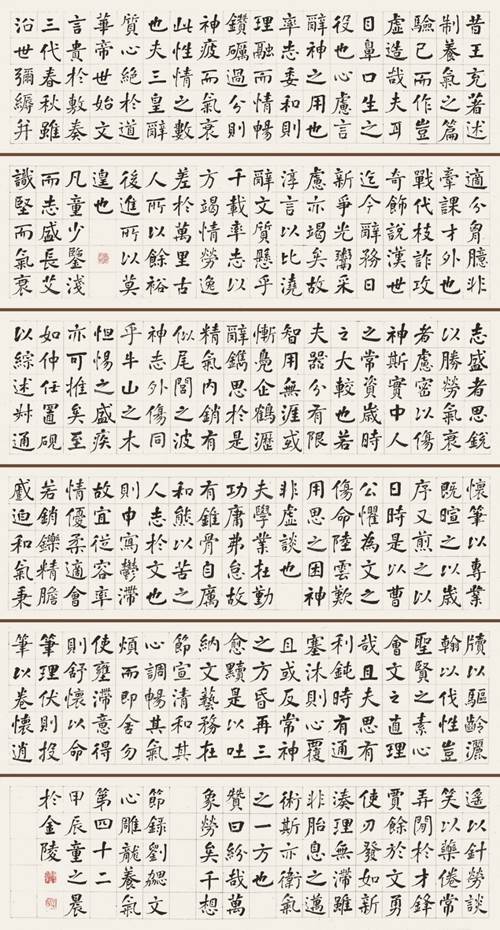 昔王充著述
制養氣之篇
驗己而作豈
虛造哉夫耳
目鼻口生之
役也心慮言
辭神之用也
率志委和則
理融而情暢
鑽礪過分則
神疲而氣衰
此性情之數
也夫三皇辭
質心絕於道
華帝世始文
言貴於敷奏
三代春秋雖
沿世彌縟并
適分胸臆非
牽課才外也
戰代枝詐攻
奇飾說漢世
迄今辭務日
新爭光鬻采
慮亦竭矣故
淳言以比澆
辭文質懸乎
千載率志以
方竭情勞逸
差於萬里古
人所以餘裕
後進所以莫
遑也
凡童少鑒淺
而志盛長艾
識堅而氣衰
志盛者思銳
以勝勞氣衰
者慮密以傷
神斯實中人
之常資歲時
之大較也若
夫器分有限
智用無涯或
慚鳧企鶴瀝
辭鐫思於是
精氣內銷有
似尾閭之波
神志外傷同
乎牛山之木
怛惕之盛疾
亦可推矣至
如仲任置硯
以綜述叔通
懷筆以專業
既暄之以歲
序又煎之以
日時是以曹
公懼為文之
傷命陸雲歎
用思之困神
非虛談也
夫學業在勤
功庸弗怠故
有錐骨自厲
和熊以苦之
人志於文也
則申寫鬱滯
故宜從容率
情優柔適會
若銷鑠精膽
蹙迫和氣秉
牘以驅齡灑
翰以伐性豈
聖賢之素心
會文之直理
哉且夫思有
利鈍時有通
塞沐則心覆
且或反常神
之方昏再三
愈黷是以吐
納文藝務在
節宣清和其
心調暢其氣
煩而即舍勿
使壅滯意得
則舒懷以命
筆理伏則投
筆以卷懷逍
遙以針勞談
笑以藥倦常
弄閑於才鋒
賈餘於文勇
使刃發如新
湊理無滯雖
非胎息之邁
術斯亦衛氣
之一方也
贊曰紛哉萬
象勞矣千想
節錄劉勰文
心雕龍養氣
第四十二
甲辰童之晨
於金陵